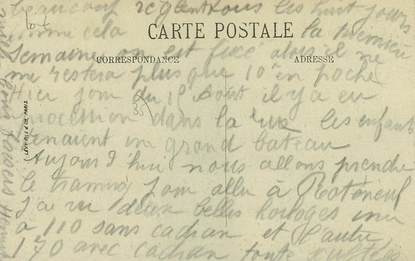 beaucoup reglent tous les huit jours
comme cela la dernière
CARTE POSTALE
semaine on est fixé alors il ne
CORRESPONDANCE
ADRESSE
me restera plus que 10 en poche
Hier jour du 15 Aout il y a eu
procession dans la rue les enfant
tenaient un grand bateau
Aujourd'hui nous allons prendre
le tramway pour aller à Rotheneuf
J'ai vu deux belles horloges une
à 110 sans cadran et l'autre
170 avec cadran toute